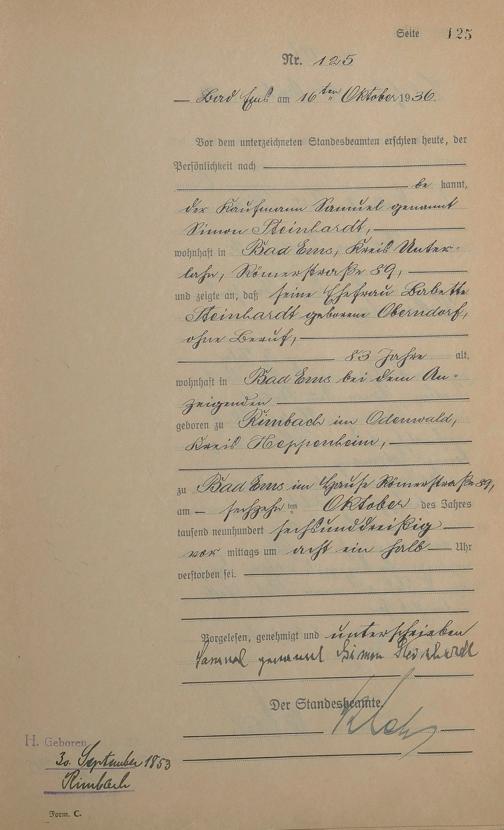 Seite 125
Nr. 125
Bad Ems am 16ten Oktober 1936.
Vor dem unterzeichneten Standesbeamten erschien heute, der
Persönlichkeit nach
be kannt,
der Kaufmann Samuel genannt
Simon Steinhardt,
wohnhaft in Bad Ems, Kreis Unter-
lahn, Römerstraße 89,
und zeigte an, daß seine Ehefrau Babette
Steinhardt geborene Oberndorf,
ohne Beruf,
83 Jahre alt,
wohnhaft in Bad Ems bei dem An-
zeigenden
geboren zu Rimbach im Odenwald,
Kreis Heppenheim,
zu Bad Ems im Hause Römerstraße 89,
am sechzehnten Oktober des Jahres
tausend neunhundert sechsunddreißig
vor mittags um acht ein halb Uhr
verstorben sei.
Vorgelesen, genehmigt und unterschrieben
Samuel genannt Simon Steinhardt
Der Standesbeamte.
H. Geboren
30. September 1853
Rimbach
Form. C.